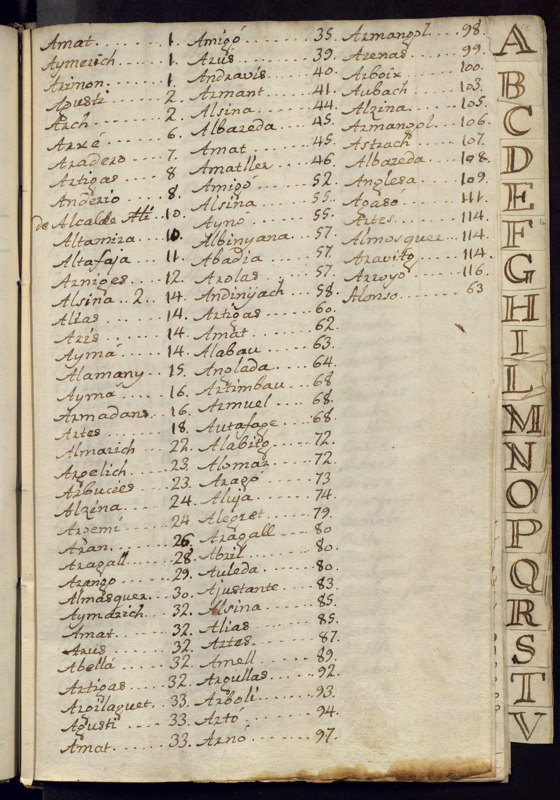 Amat. 1.
Aymerich 1.
Arimon. 1.
Agusti 2.
Arch 2.
Arxé 6.
Aradero 7.
Artigas 8
Anderio 8.
de Alcalde 10.
Altamira 10.
Altafaja 11.
Arniges 12.
Alsina 2 14.
Alias 14.
Aris 14.
Aymá 14.
Alamany 15.
Aymá 16.
Armadans 16.
Artes 18.
Almarich 22.
Argelich 23
Arbucies 23.
Alzina 24.
Aroemi 24
Aran. 26.
Aragall 28.
Arango 29.
Almasquer 30.
Aymarich 32.
Amat 32.
Aris 32.
Abellá 32.
Artigas 32.
Argilaguet 33.
Agusti 33.
Amat 33.
Amigó 35.
Arus 39.
Andravis 40.
Armant 41.
Alsina 44.
Albareda 45.
Amat 45.
Amatller 46.
Amigó 52.
Alsina 55.
Aynó 55.
Albinyana 57.
Abadia 57.
Arolas 57.
Andinyach 58.
Artigas 60.
Amat 62.
Alabau 63.
Anglada 64.
Artimbau 68
Armuel 68.
Autafage 68.
Alabitg 72.
Alomar 72.
Aragó 73
Aluja 74.
Alegret 79.
Aragall 80
Abril 80.
Auleda 80.
Ajustante 83
Alsina 85.
Alias 85.
Artes 87.
Amell 89.
Argullas 92.
Arboli 93.
Arto 94.
Arnó 97.
Armangol 98.
Arenas 99.
Arboix 100.
Aubach 103.
Alzina 105.
Armangol 106.
Astrach 107.
Albareda 108.
Anglesa 109.
111.
Artes 114.
Almosquer 114.
Aravitg 114.
Arroyo 116.
Alonso 63
A
B
C
D
E
F
G
H
I
L
M
N
O
P
Q
R
S
T
V